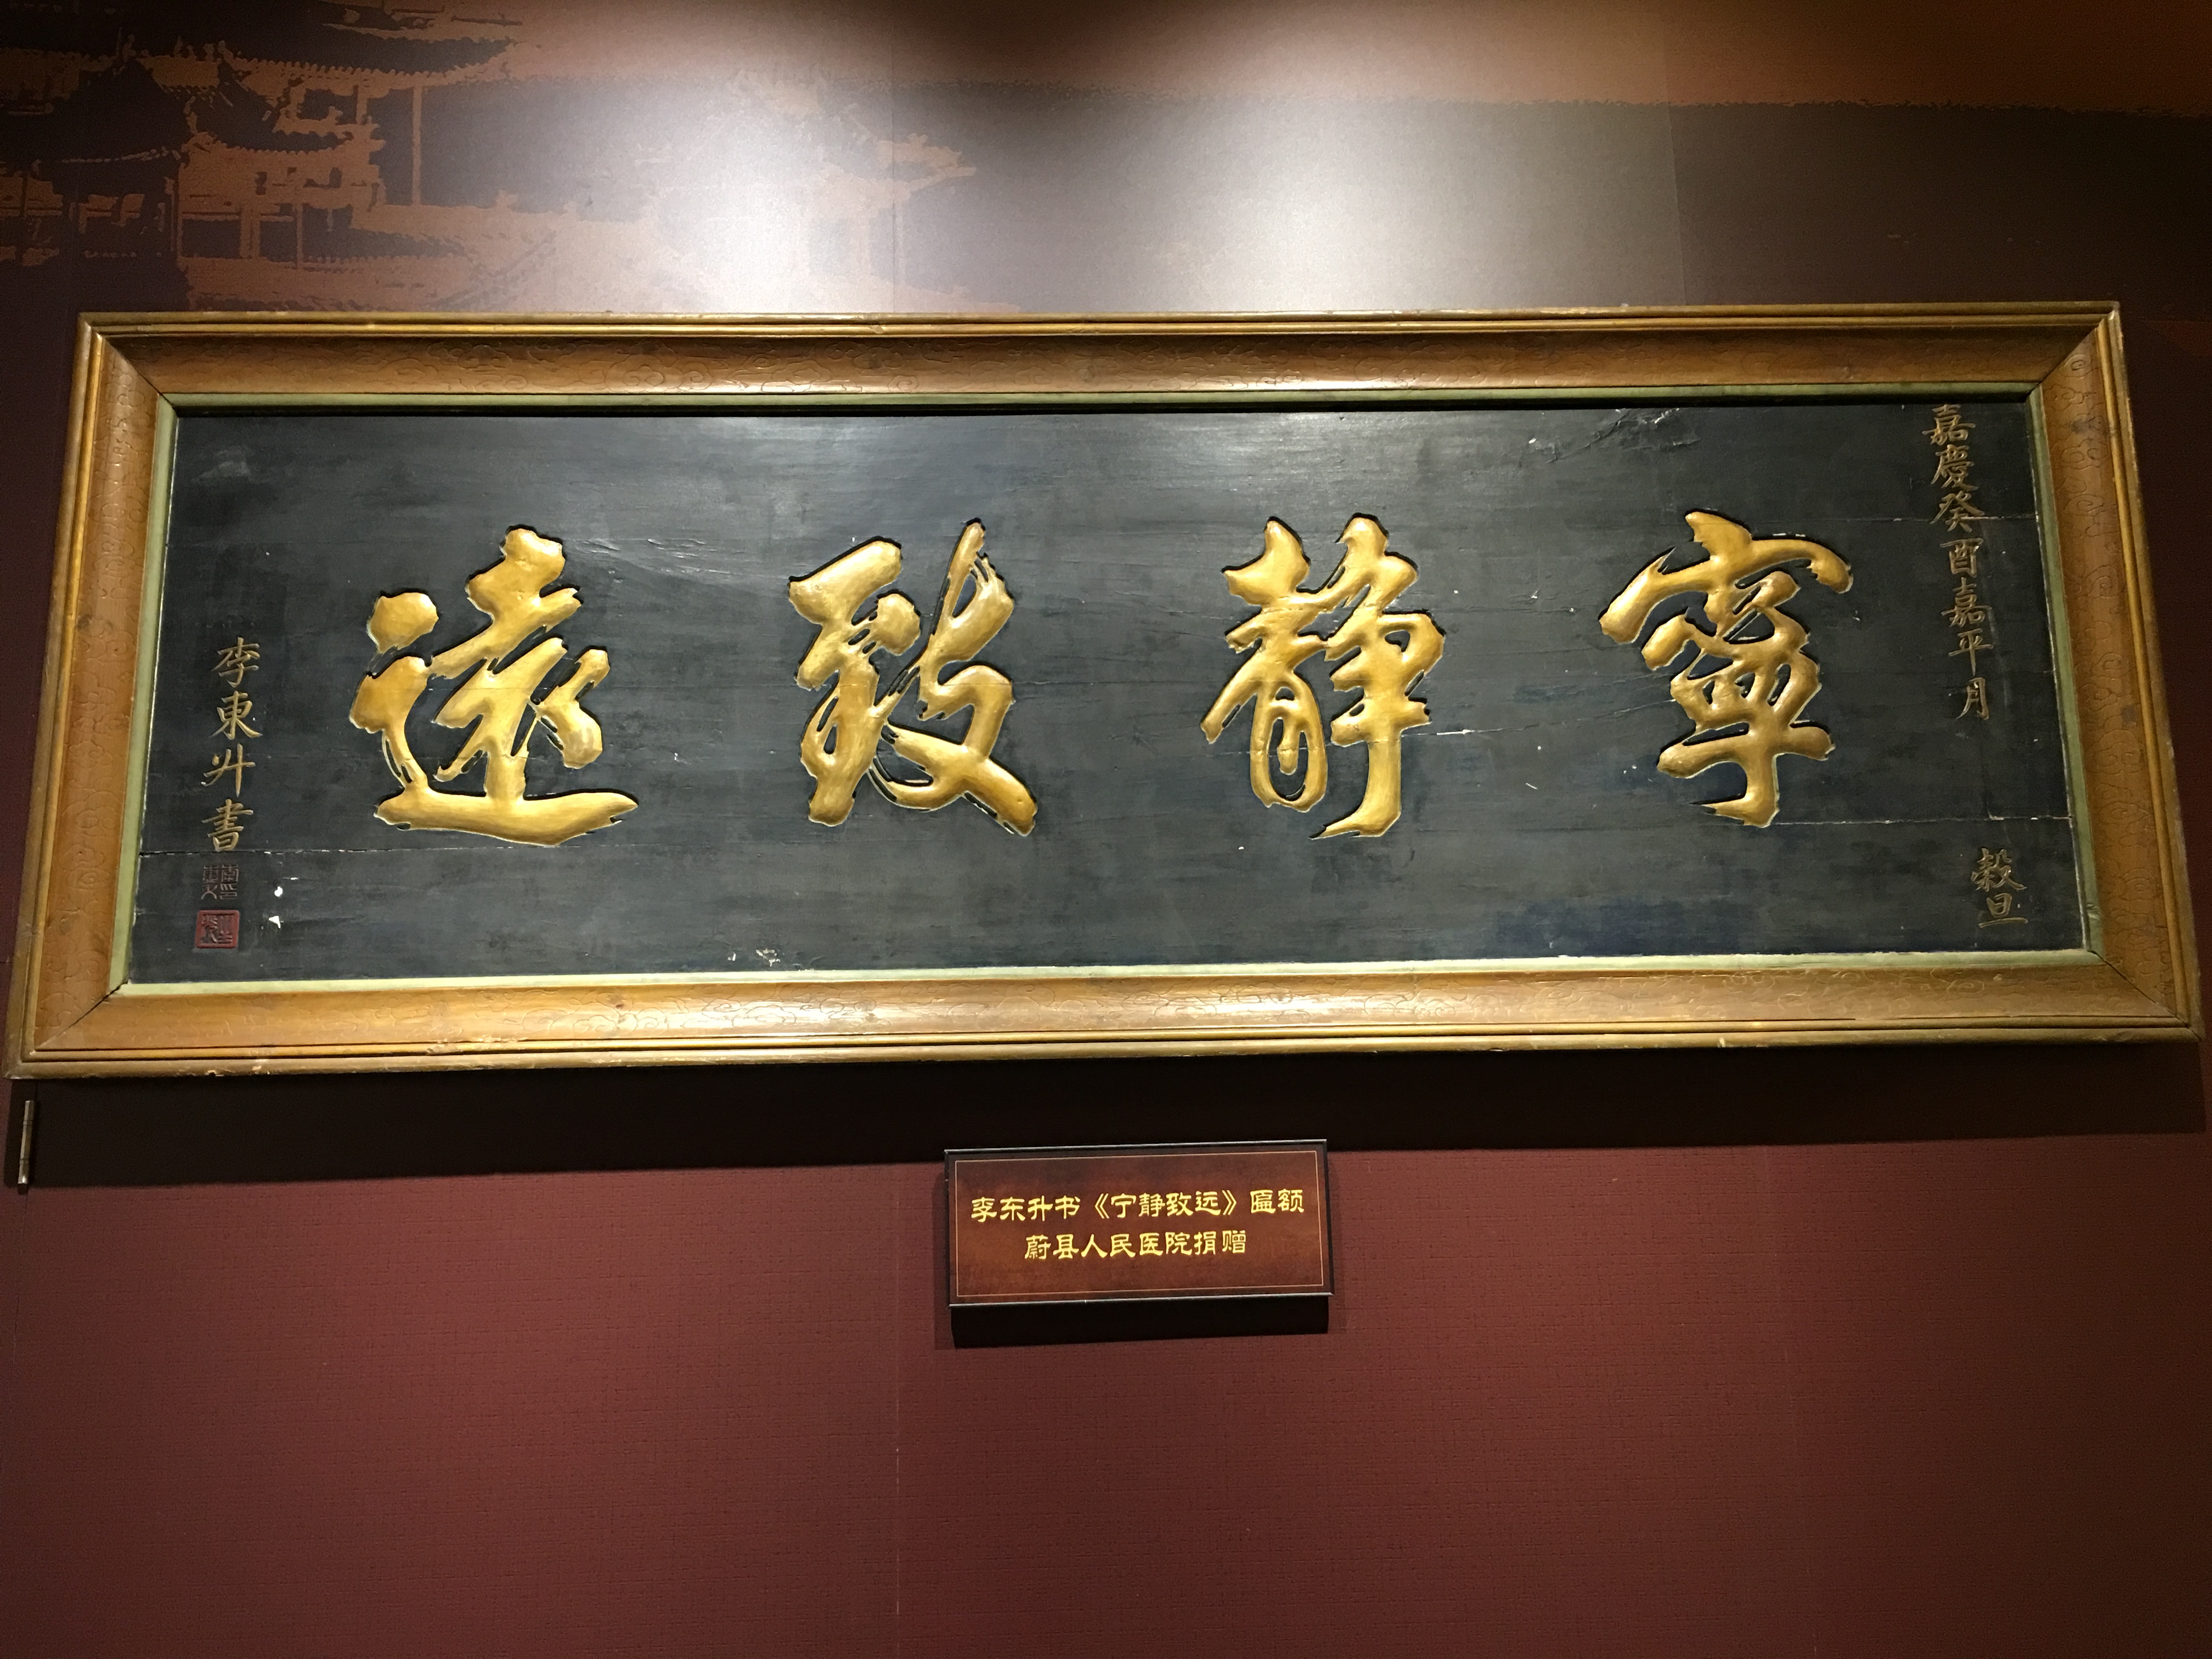 嘉慶癸酉嘉平月 穀旦
寧靜致遠
李東升書
李东升书《宁静致远》匾额
蔚县人民医院捐赠